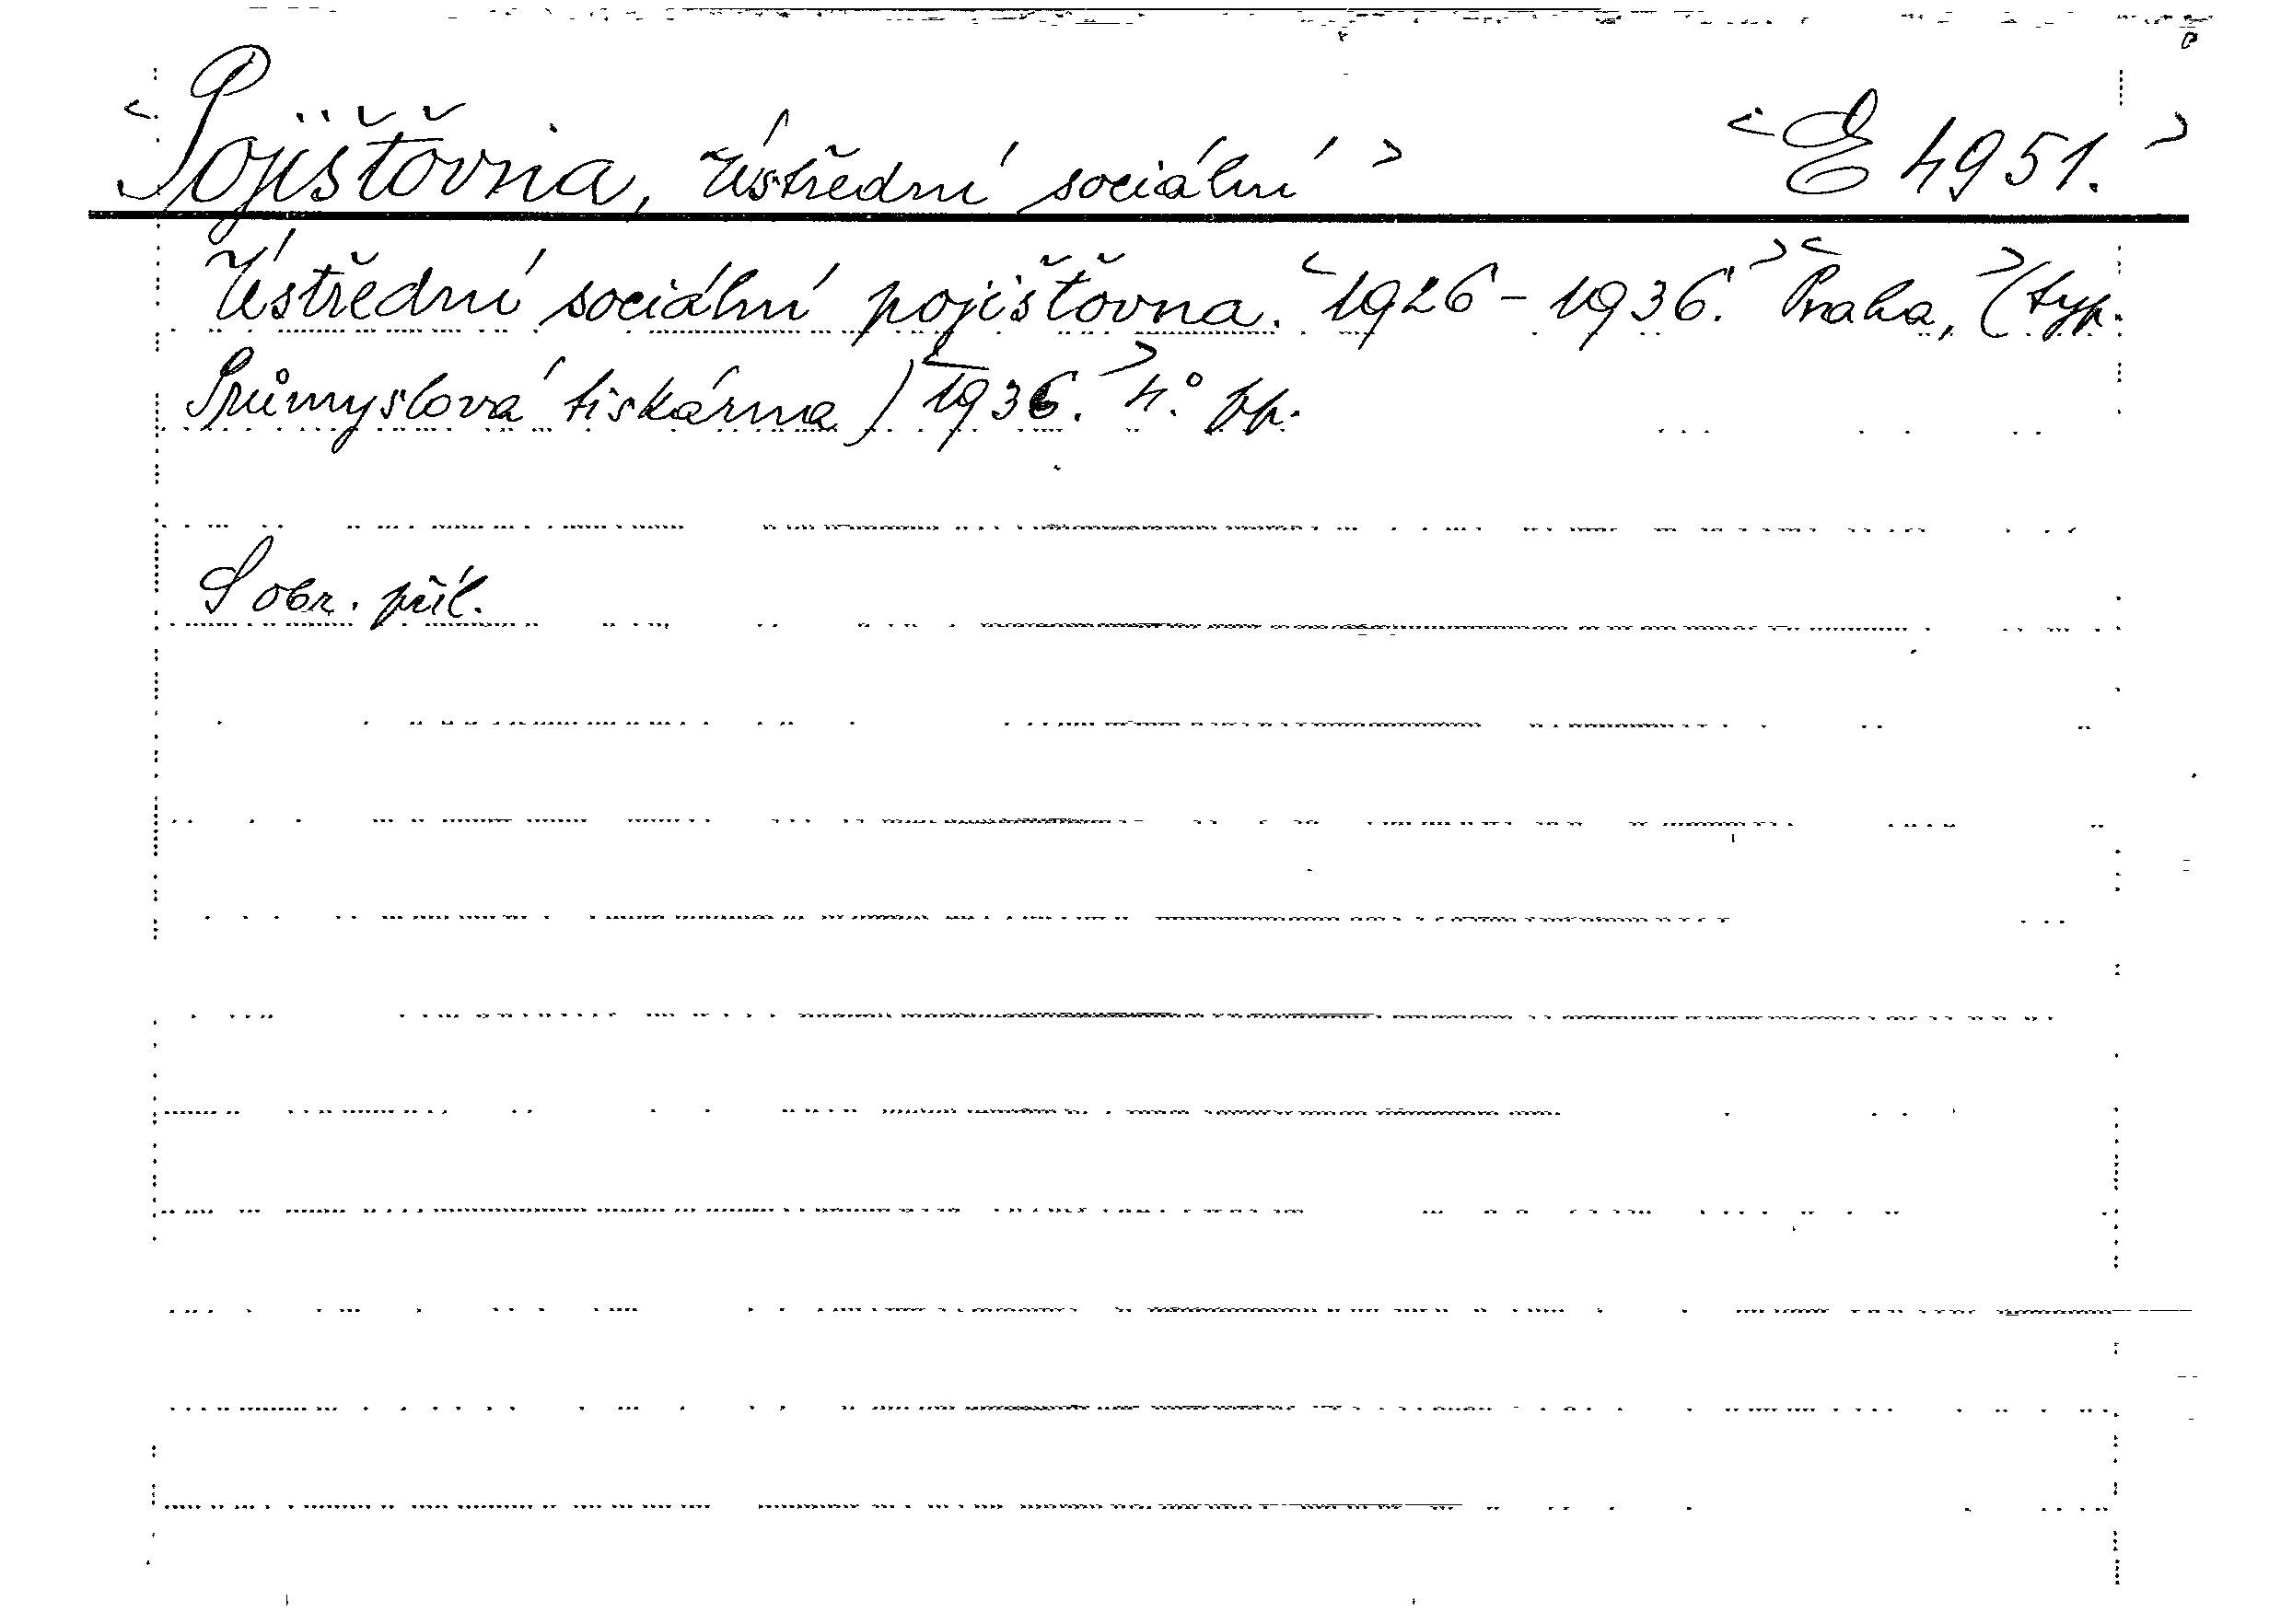 <Pojišťovna, Ústřední sociální> <E 4951.>
Ústřední sociální pojišťovna. <1926-1936.> <Praha,> (typ.
Průmyslová tiskárna) <1936.> 4.° pp.
S obr. příl.